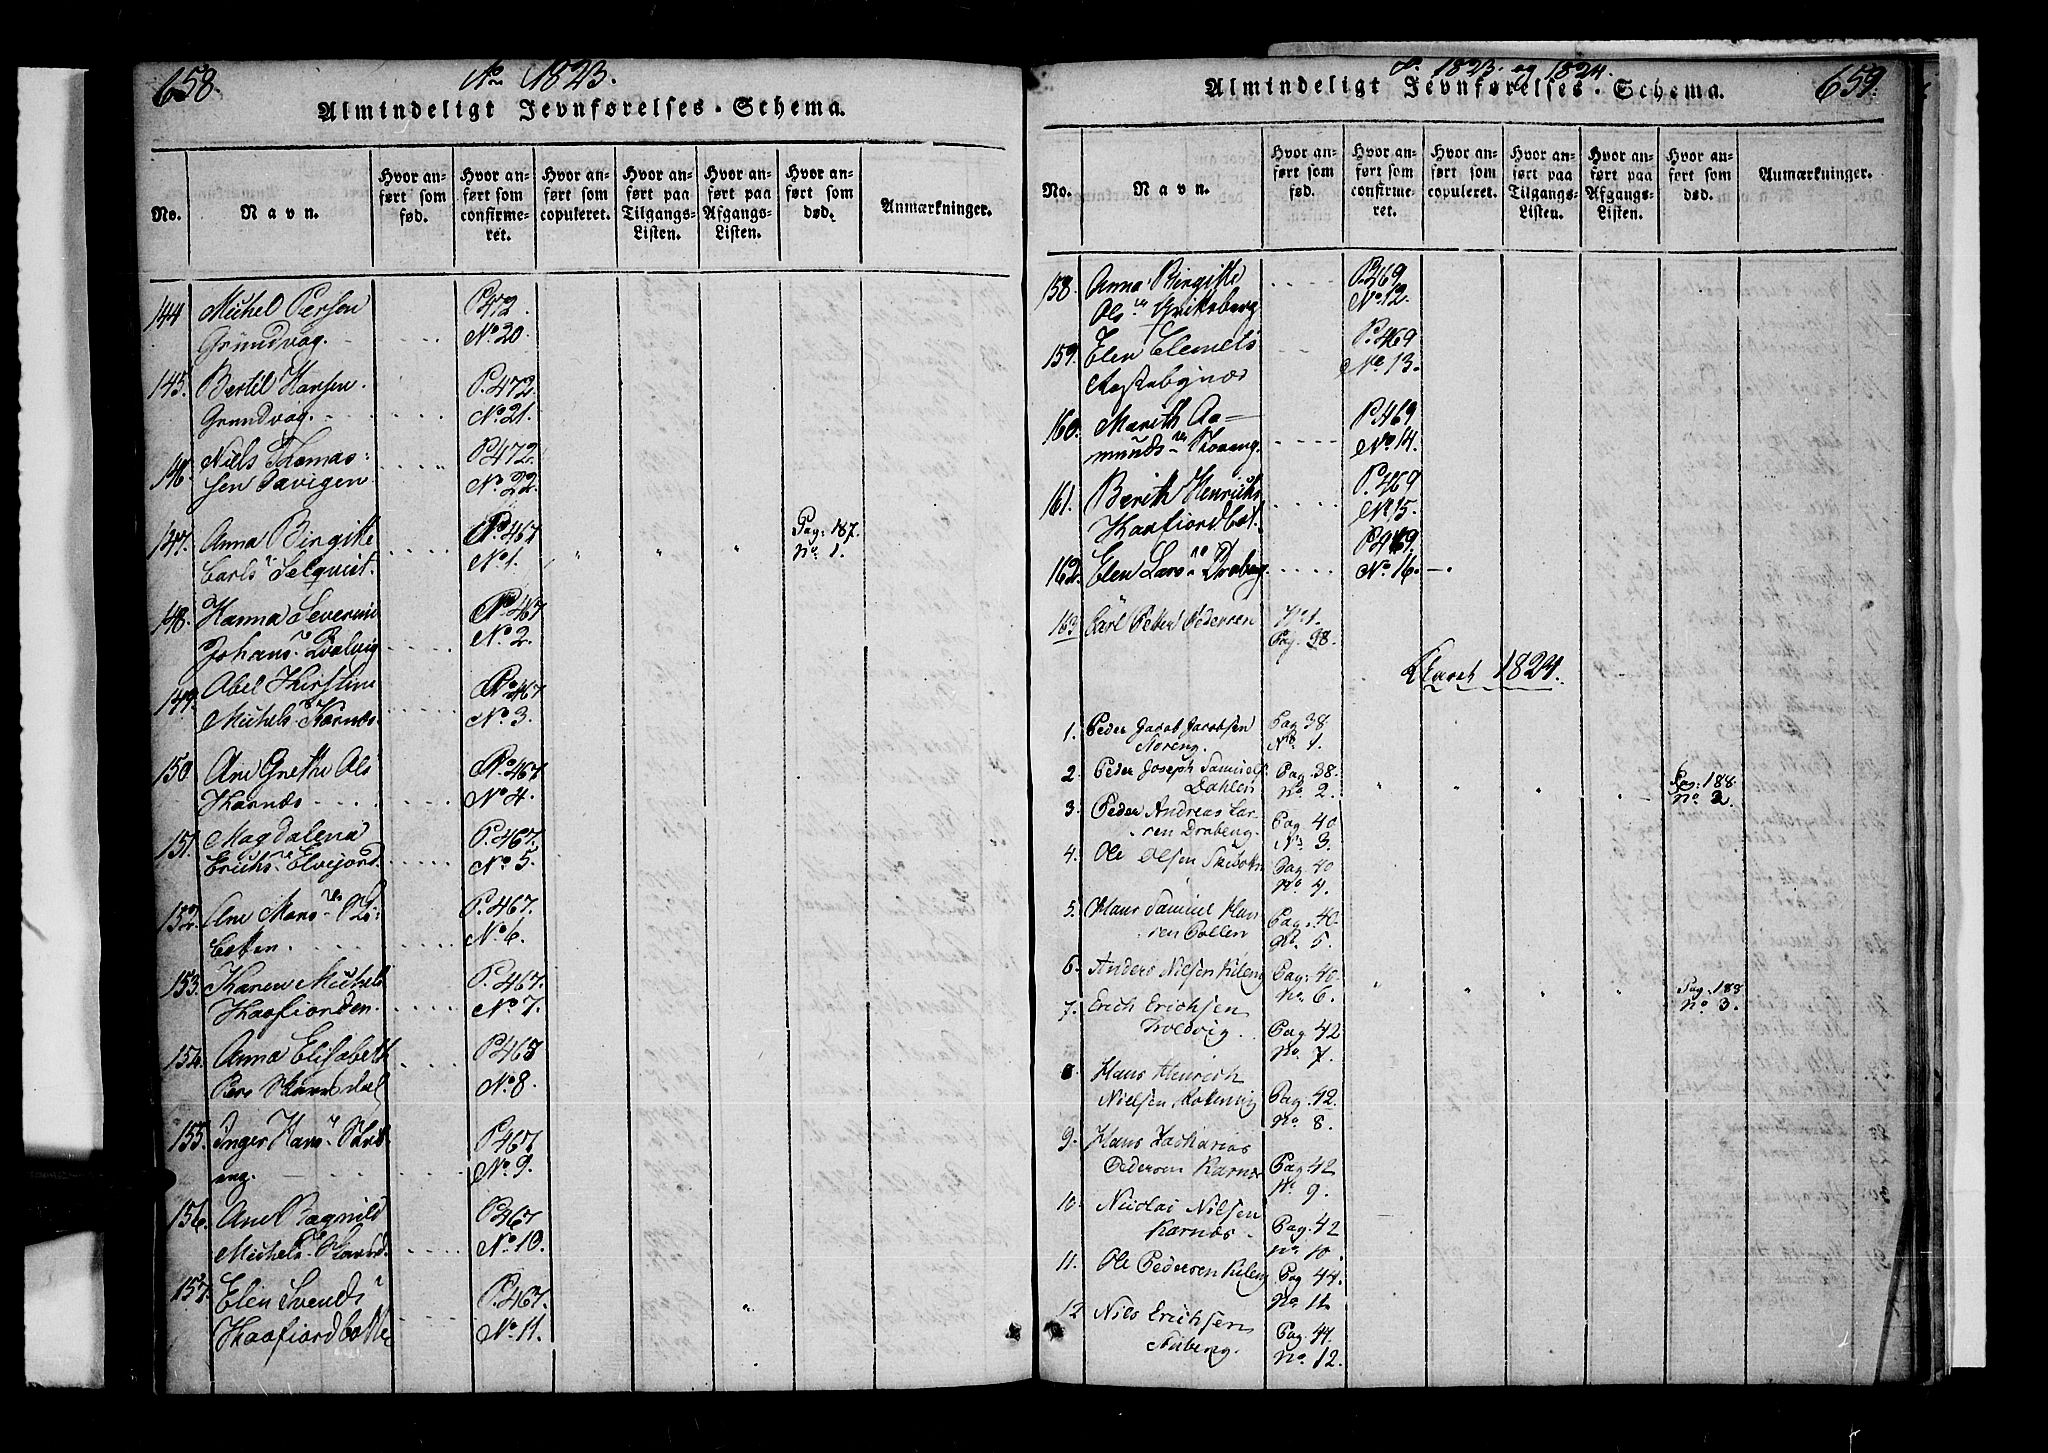 658.
Ao 1823.
Almindeligt Jevnførelses-Schema.
No.
Navn.
Hvor anført som fød.
Hvor anført som confirmeret.
Hvor anført som copuleret.
Hvor anført paa Tilgangs-Listen.
Hvor anført paa Afgangs-Listen.
Hvor anført som død.
Anmærkninger.
144 Michel Persen P. 472
Grundvog. No. 20.
145. Bertel Hansen P. 472.
Grundvog. No. 21.
146. Niels Thomas- P. 472.
sen No. 22.
147. Anna Birgitte P. 467 Pag: 187.
Carls No. 1. No. 1.
148. Hanna Severine P. 467
Johans No. 2.
149. Abel Kirstine P. 467
Michels Karnæs No 3.
150 Ane Grethe Ols P. 467
Karnæs No. 4.
151. Magdalena P. 467.
Erichs Elvejord No. 5.
152. Ane Mons P. 467.
botten. No. 6.
153. Karen Michels P. 467.
Kaafjorden. No. 7.
154. Anna Elisabeth P. 467
Pers No. 8.
155. Inger Hans P. 467
eng. No. 9.
156. Ane Ragnild P. 467
Michels No. 10.
157. Elen Svends P. 467.
Kaafiordbotten No. 11.
659.
1823. og 1824.
Almindeligt Jevnførelses-Schema.
No.
Navn.
Hvor anført som fød.
Hvor anført som confirmeret.
Hvor anført som copuleret.
Hvor anført paa Tilgangs-Listen.
Hvor anført paa Afgangs-Listen.
Hvor anført som død.
Anmærkninger.
158. Anna Birgitte P. 469
Ols No. 12.
159. Elen Clemets P. 469
No. 13.
160. Marith Aa- P. 469
munds No. 14.
161. Berith Henrichs P. 469
Kaafiordbot. No. 15.
162. Elen Lars P. 469.
No. 16.
163 Carl Peter Pedersen No. 1.
Pag. 38.
Aaret 1824.
1. Peder Jacob Jacobsen Pag 38
No. 1.
2. Peder Joseph Samuels. Pag. 38. Pag: 188
Dahlen No. 2. No. 2.
3. Peder Andreas Lar- Pag. 40
sen No. 3.
4. Ole Olsen Skibotn Pag. 40
No. 4.
5. Hans Samuel Han Pag. 40.
sen Pollen No. 5.
6. Anders Nilsen Kileng Pag. 40 Pag. 188
No. 6. No. 3.
7. Erich Erichsen
Pag. 42
No. 7.
8 Hans Henrich
Nielsen Pag. 42.
No. 8.
9. Hans Zacharias
Pedersen Karnæs Pag. 42
No. 9.
10. Nicolai Nilsen
Karnæs. Pag. 42
No. 10.
11. Ole Pedersen Kileng Pag 44.
No. 11
12 Nils Erichsen
Pag. 44.
No. 12.